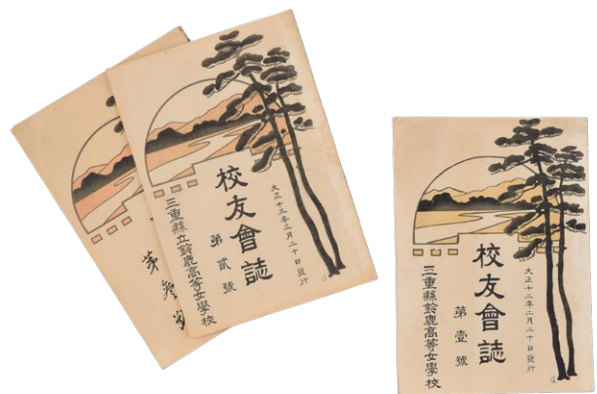 大正十三年三月二十日發行
校友會誌
第貳號
三重縣立鈴鹿高等女學校
第參
大正十二年二月二十日發行
校友會誌
第壹號
三重縣鈴鹿高等女學校